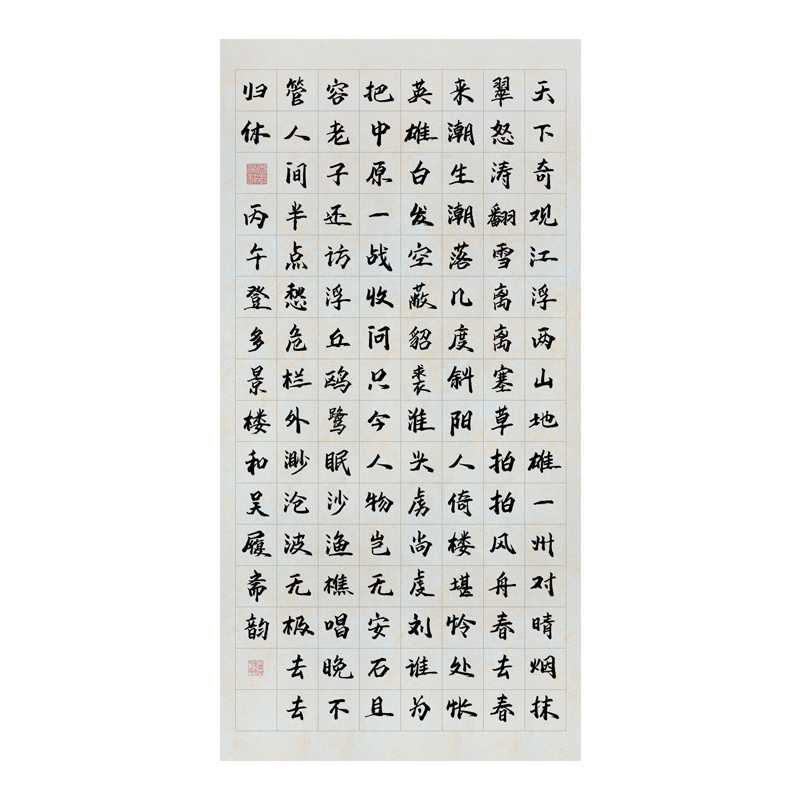 天下奇观江浮两山地雄一州对晴烟抹
翠怒涛翻雪离离塞草拍拍风舟春去春
来潮生潮落几度斜阳人倚楼堪怜处怅
英雄白发空蔽貂裘淮头虏尚虔刘谁为
把中原一战收问只今人物岂无安石且
容老子还访浮丘鸥鹭眠沙渔樵唱晚不
管人间半点愁危栏外渺沧波无极去去
归休丙午登多景楼和吴履斋韵